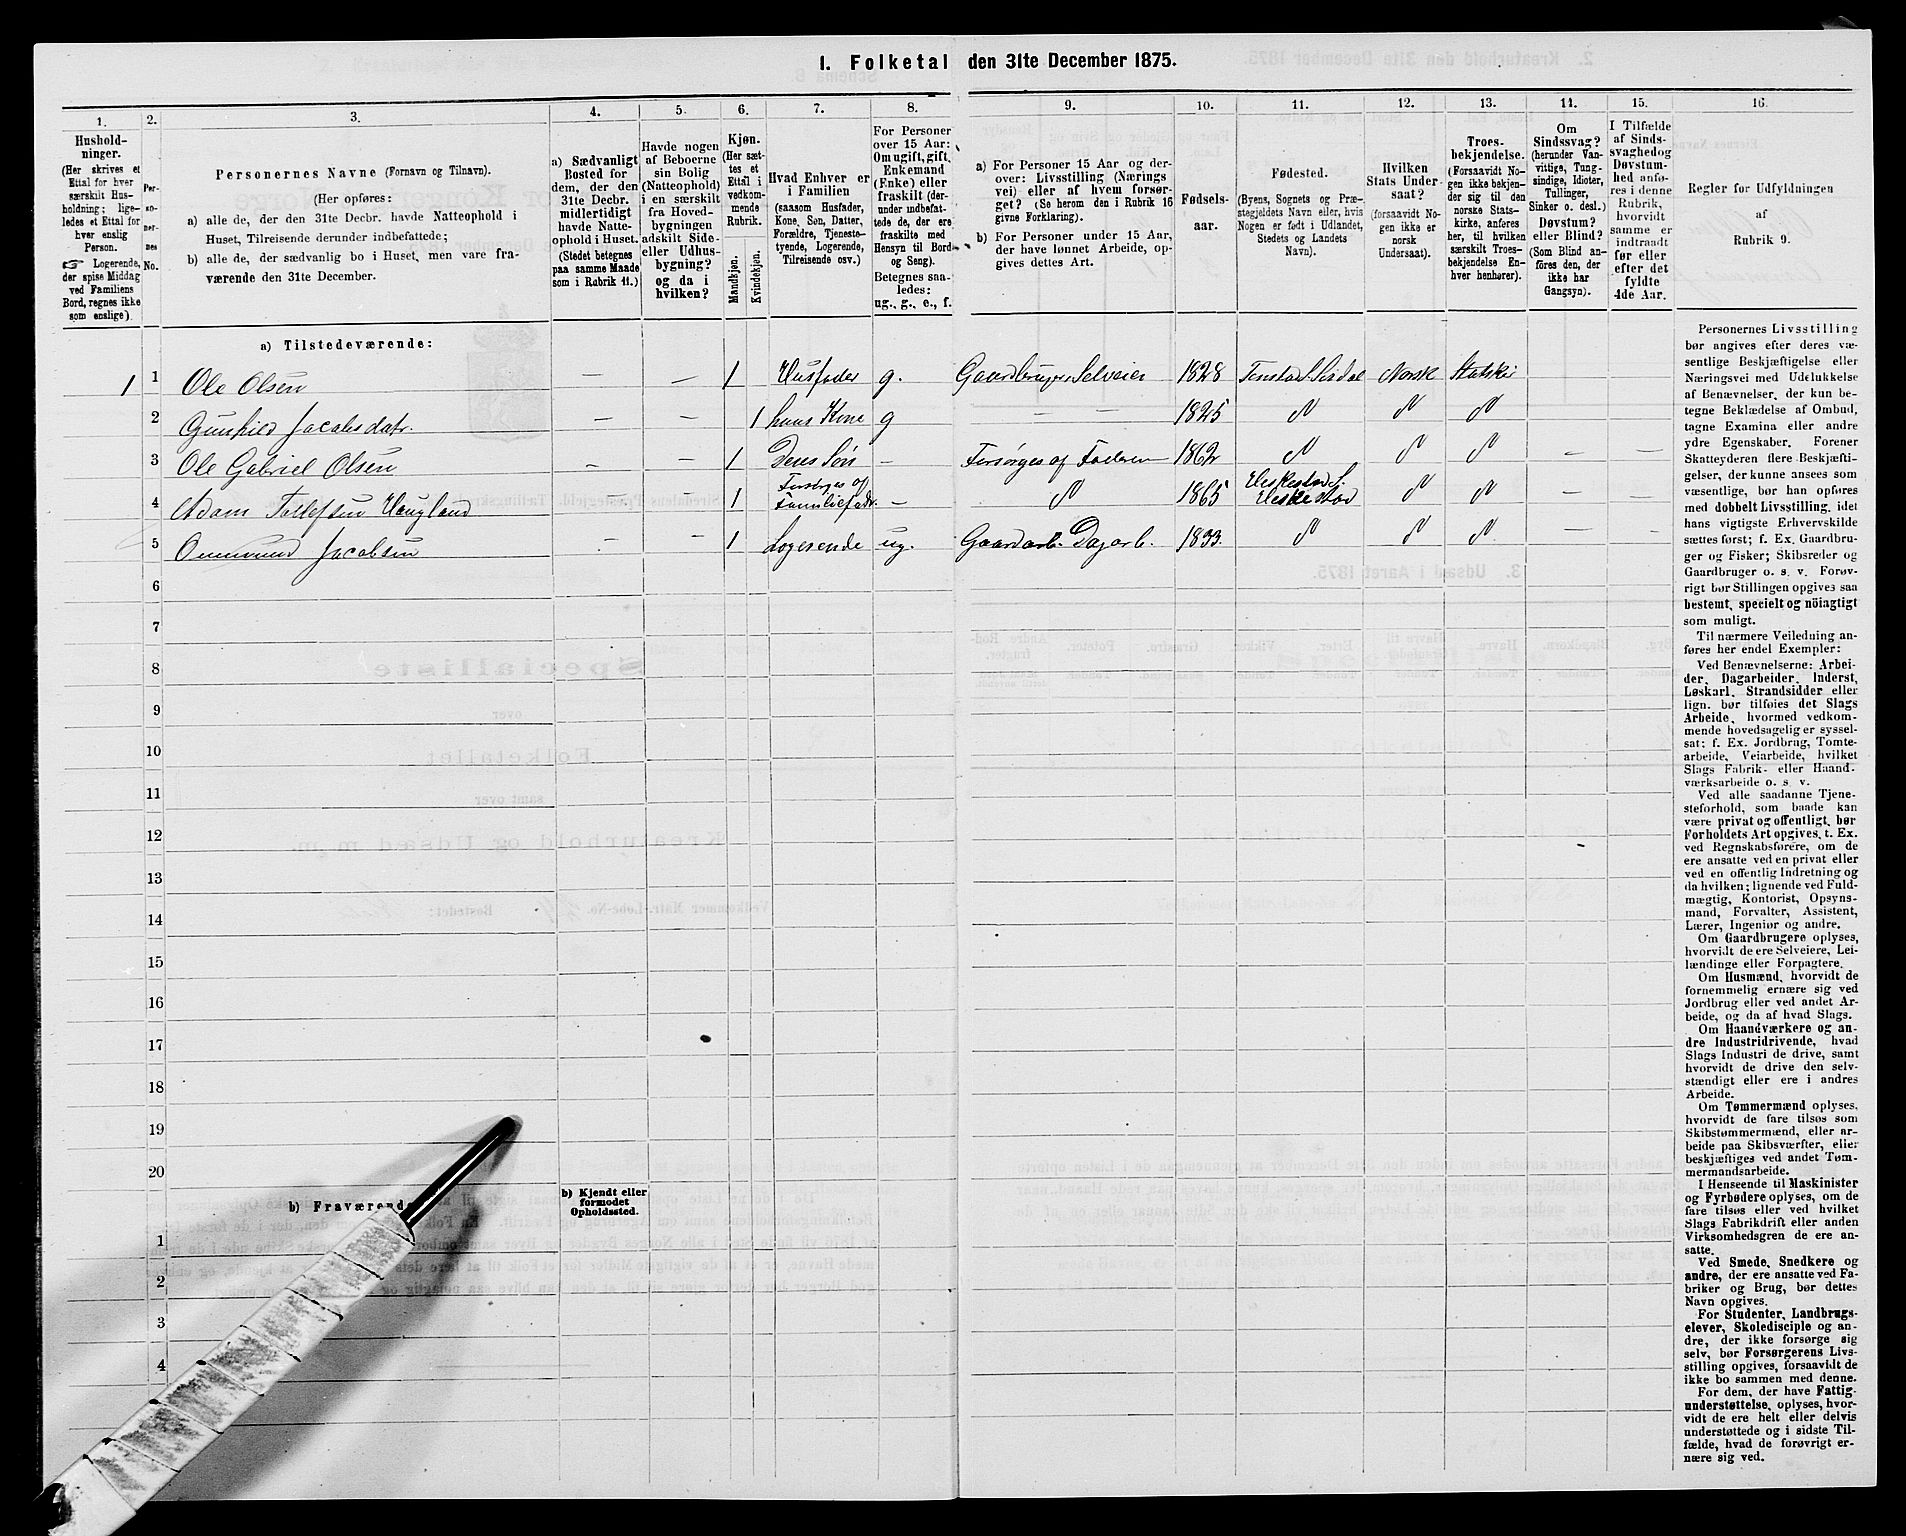 1. Folketal den 31te December 1875.
1.
Hushold-
ninger.
(Her skrives et
Ettal for hver
særskilt Hus-
holdning; lige-
ledes et Ettal for
hver enslig
Person.
☞ Logerende,
der spise Middag
ved Familiens
Bord, regnes ikke
som enslige).
2.
Per-
so-
ner-
nes
No.
3.
Personernes Navne (Fornavn og Tilnavn).
(Her opføres:
a) alle de, der den 31te Decbr. havde Natteophold i
Huset, Tilreisende derunder indbefattede;
b) alle de, der sædvanlig bo i Huset, men vare fra-
værende den 31te December.
4.
a) Sædvanligt
Bosted for
dem, der den
31te Decbr.
midlertidigt
havde Natte-
ophold i Huset.
(Stedet betegnes
paa samme Maade
som i Rubrik 11.)
5.
Havde nogen
af Beboerne
sin Bolig
(Natteophold)
i en særskilt
fra Hoved-
bygningen
adskilt Side-
eller Udhus-
bygning?
og da i
hvilken?
6.
Kjøn.
(Her sæt-
tes et
Ettal i
vedkom-
mende
Rubrik.
Mandkjøn.
Kvindekjøn.
7.
Hvad Enhver er
i Familien
(saasom Husfader,
Kone, Søn, Datter,
Forældre, Tjeneste-
tyende, Logerende,
Tilreisende osv.)
8.
For Personer
over 15 Aar:
Om ugift, gift,
Enkemand
(Enke) eller
fraskilt (der-
under indbefat-
tede de, der ere
fraskilte med
Hensyn til Bord
og Seng).
Betegnes saa-
ledes:
ug., g., e., f.
9.
a) For Personer 15 Aar og der-
over: Livsstilling (Nærings
vei) eller af hvem forsør-
get? (Se herom den i Rubrik 16
givne Forklaring).
b) For Personer under 15 Aar,
der have lønnet Arbeide, op-
gives dettes Art.
10.
Fødsels-
aar.
11.
Fødested.
(Byens, Sognets og Præ-
stegjeldets Navn eller, hvis
Nogen er født i Udlandet,
Stedets og Landets
Navn).
12.
Hvilken
Stats Under-
saat?
(forsaavidt No-
gen ikke er
norsk
Undersaat).
13.
Troes-
bekjendelse.
(Forsaavidt No-
gen ikke bekjen-
der sig til den
norske Stats-
kirke, anføres
her, til hvilken
særskilt Troes-
bekjendelse En-
hver henhører).
14.
Om
Sindssvag?
(herunder Van-
vittige, Tung-
sindige, Idioter,
Tullinger,
Sinker o. desl.)
Døvstum?
eller Blind?
(Som Blind an-
føres den, der
ikke har
Gangsyn).
15.
I Tilfælde
af Sinds-
svaghed og
Døvstum-
hed anfø-
res i denne
Rubrik,
hvorvidt
samme er
indtraadt
før eller
efter det
fyldte
4de Aar.
16.
Regler for Udfyldningen
af
Rubrik 9.
a) Tilstedeværende:
1 1 Ole Olsen — — 1 Husfader g. Gaardbruger Selveier 1828 Norsk Statskir — —
2 Gunhild Jacobsdatr. — — 1 hans Kone g — — 1825 〃 〃 〃 — —
3 Ole Gabriel Olsen — — 1 Deres Søn — Forsørges af Faderen 1862 〃 〃 〃 — —
4 Adam Tollefsen Haugland — — 1 Forsørges af
Familiefadr. — 〃 1865 Heskestad S.
Heskestad 〃 〃 — —
5 Ommund Jacobsen — — 1 Logerende ug. Gaardarb. Dagarb. 1833. 〃 〃 〃 — —
6
7
8
9
10
11
12
13
14
15
16
17
18
19
20
b) Fraværende
b) Kjendt eller
formodet
Opholdssted.
1
2
3
4
Personernes Livsstilling
bør angives efter deres væ-
sentlige Beskjæftigelse eller
Næringsvei med Udelukkelse
af Benævnelser, der kun be-
tegne Beklædelse af Ombud,
tagne Examina eller andre
ydre Egenskaber. Forener
Skatteyderen flere Beskjæfti-
gelser, der kunne ansees som
væsentlige, bør han opføres
med dobbelt Livsstilling, idet
hans vigtigste Erhvervskilde
sættes først; f. Ex. Gaardbru-
ger og Fisker; Skibsreder og
Gaardbruger o. s. v. Forøv-
rigt bør Stillingen opgives saa
bestemt, specielt og nöiagtigt
som muligt.
Til nærmere Veiledning an-
føres her endel Exempler:
Ved Benævnelserne: Arbei-
der, Dagarbeider, Inderst,
Løskarl, Strandsidder eller
lign. bør tilføies det Slags
Arbeide, hvormed vedkom-
mende hovedsagelig er syssel-
sat; f. Ex. Jordbrug, Tomte-
arbeide, Veiarbeide, hvilket
Slags Fabrik- eller Haand-
værksarbeide o. s. v.
Ved alle saadanne Tjene-
steforhold, som baade kan
være privat og offentligt, bør
Forholdets Art opgives, t. Ex.
ved Regnskabsførere, om de
ere ansatte ved en privat eller
ved en offentlig Indretning og
da hvilken; lignende ved Fuld-
mægtig, Kontorist, Opsyns-
mand, Forvalter, Assistent,
Lærer, Ingeniør og andre.
Om Gaardbrugere oplyses,
hvorvidt de ere Selveiere, Lei-
lændinge eller Forpagtere.
Om Husmænd, hvorvidt de
fornemmelig ernære sig ved
Jordbrug eller ved andet Ar-
beide, og da af hvad Slags.
Om Haandværkere og an-
dre Industridrivende, hvad
Slags Industri de drive, samt
hvorvidt de drive den selv-
stændigt eller ere i andres
Arbeide.
Om Tømmermænd oplyses,
hvorvidt de fare tilsøs som
Skibstømmermænd, eller ar-
beide paa Skibsværfter, eller
beskjæftiges ved andet Tøm-
mermandsarbeide.
I Henseende til Maskinister
og Fyrbødere oplyses, om de
fare tilsøs eller ved hvilket
Slags Fabrikdrift eller anden
Virksomhedsgren de ere an-
satte.
Ved Smede, Snedkere og
andre, der ere ansatte ved Fa-
briker og Brug, bør dettes
Navn opgives.
For Studenter, Landbrugs-
elever, Skoledisciple og an-
dre, der ikke forsørge sig
selv, bør Forsørgerens Livs-
stilling opgives, forsaavidt de
ikke bo sammen med denne.
For dem, der have Fattig-
understøttelse, oplyses, hvor-
vidt de ere helt eller delvis
understøttede og i sidste Til-
fælde, hvad de forøvrigt er-
nære sig ved.